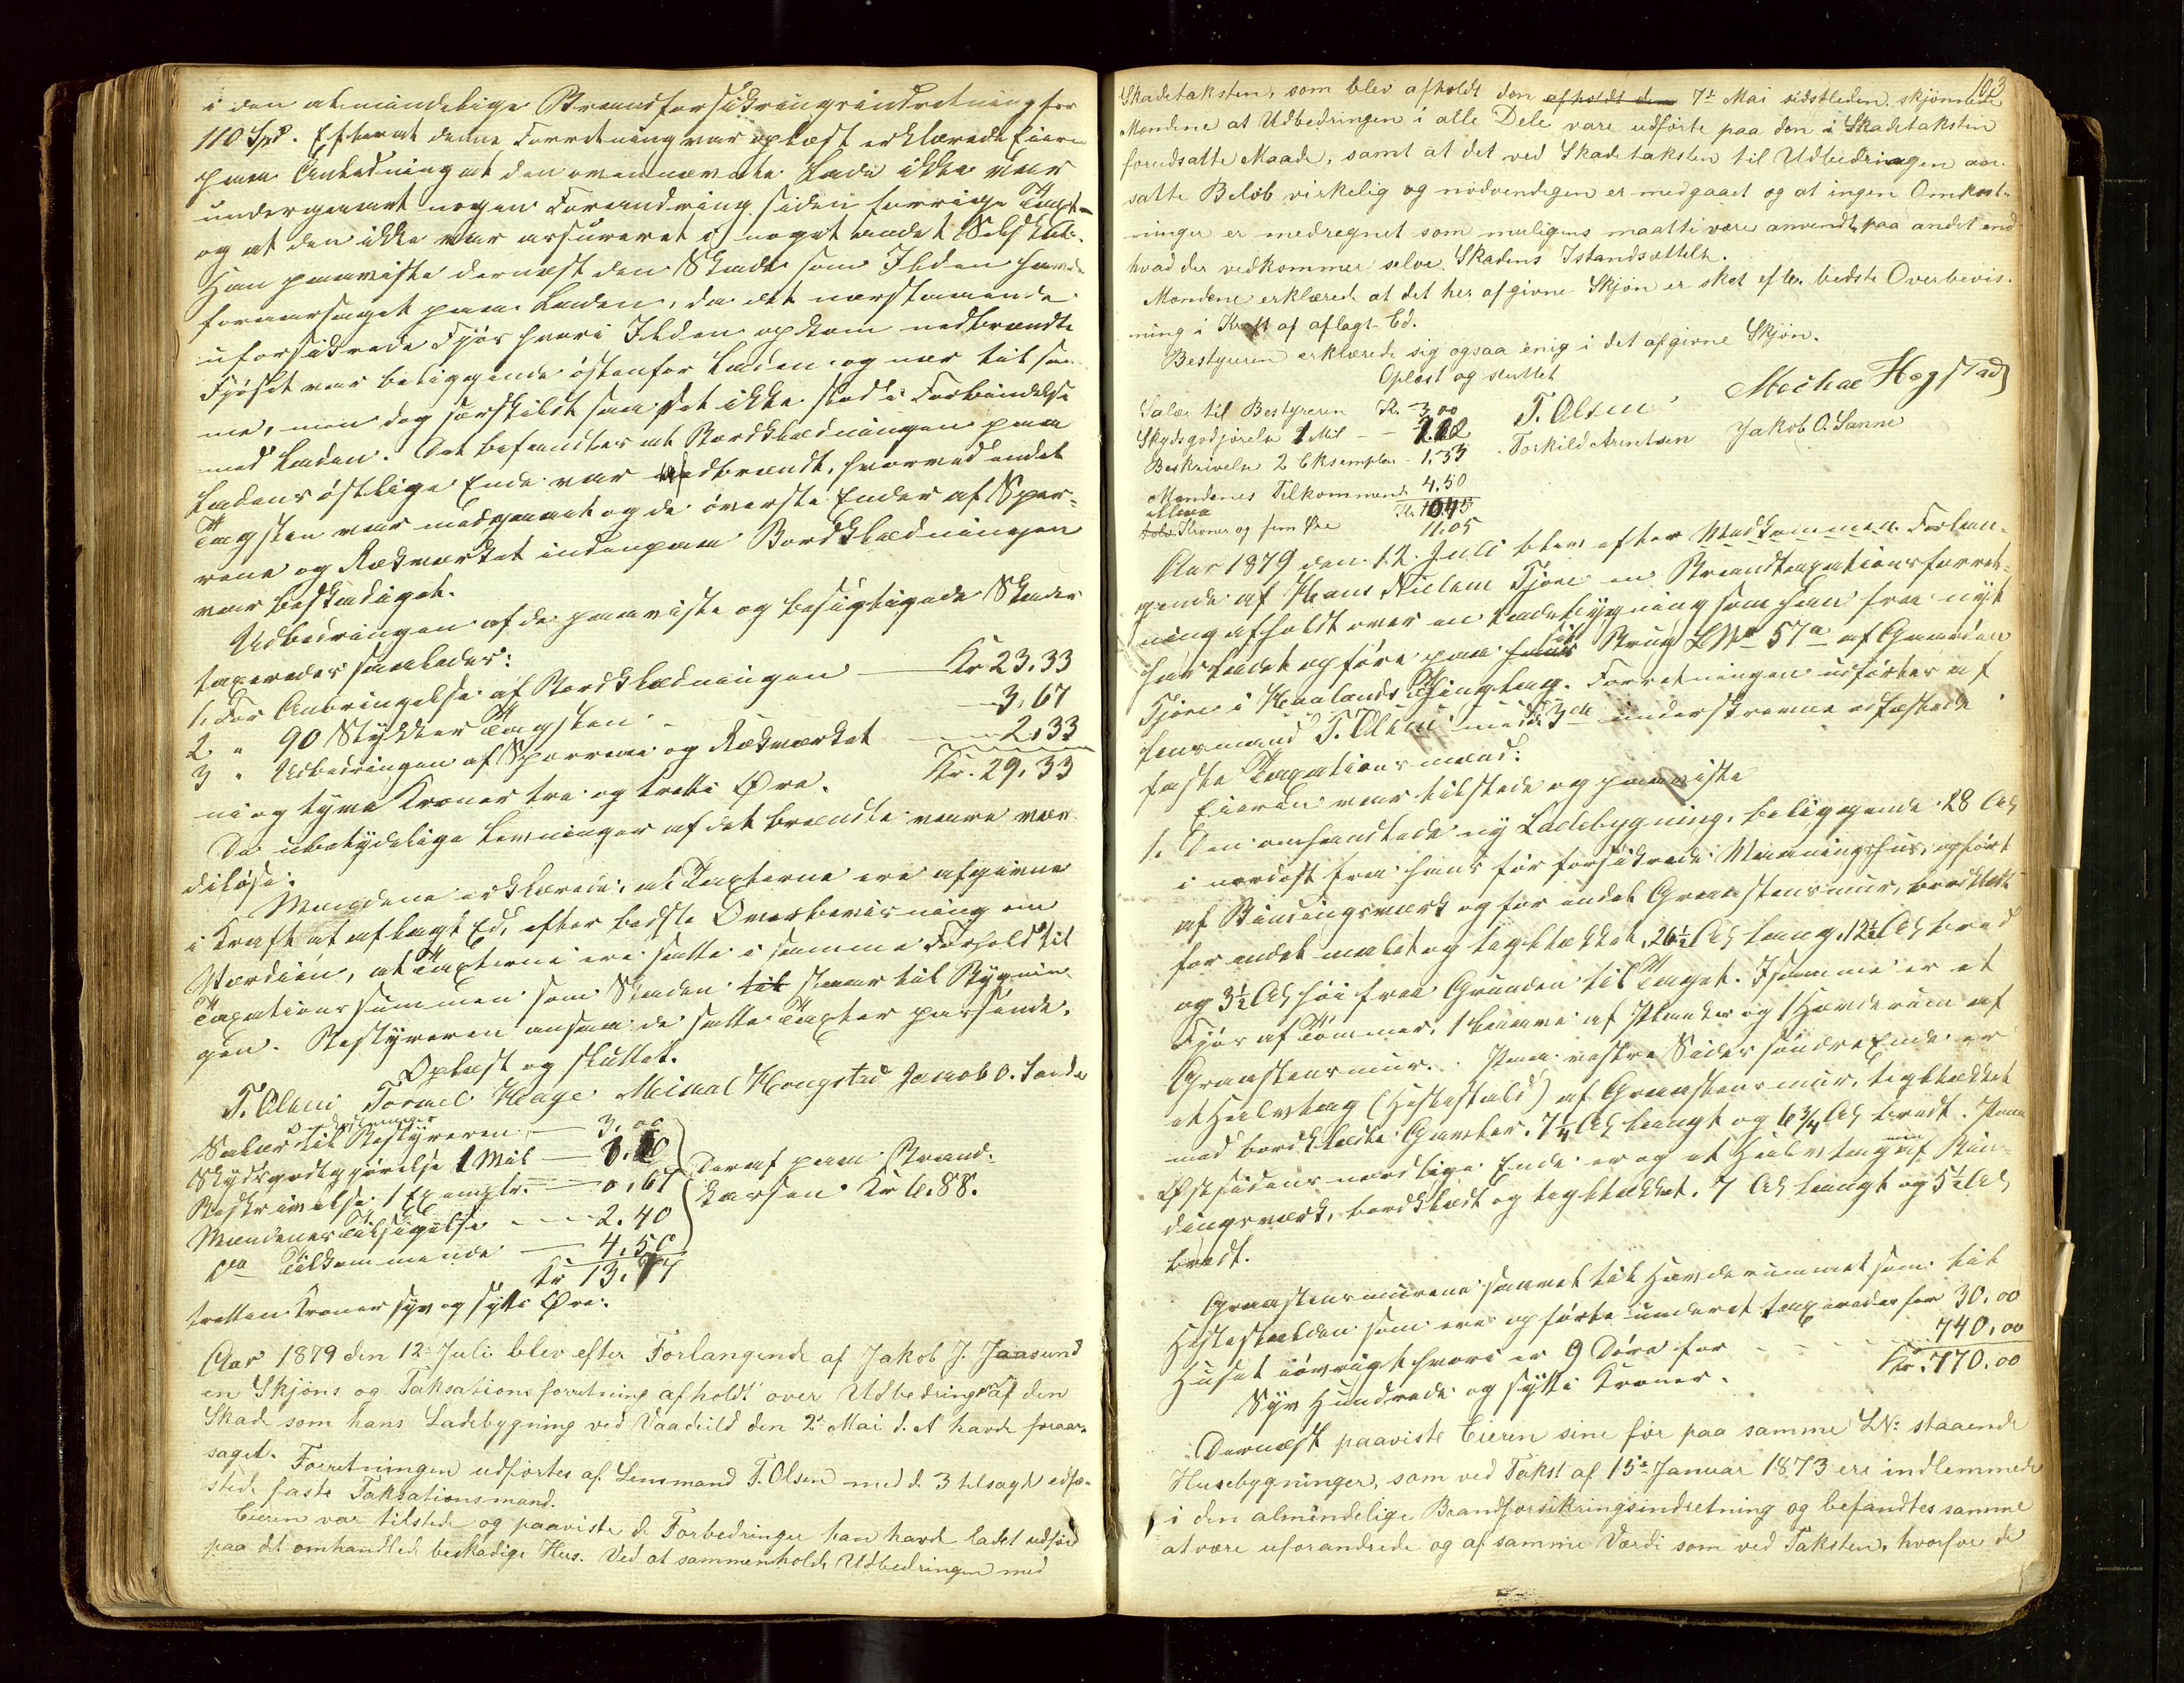 i den almindelige Brandforsikringsindretning for
110 Spd. Efterat denne Forretning var oplæst erklærede Eieren
paa Anledning at den ovennævnte Lade ikke var
undergaaet nogen Forandring siden forrige Taxt
og at den ikke var assureret i noget andet Selskab.
Han paaviste dernæst den Skade som Ilden havde
foraarsaget paa Laden, da det nærstaaende
uforsikrede Fjøs hvori Ilden opkom nedbrændte
Fjøset var beliggende östenfor Laden og nær til sam
me, men dog særskildt saa det ikke stod i Forbindelse
med Laden. Det befandtes at Bordklædningen paa
Ladens östlige Ende var afbrændt, hvorved endel
Tagsten var medgaaet og de överste Ender af Spær-
rene og Rækværket indenpaa Bordklædningen
var beskadiget.
Udbedringen af de paaviste og besigtigede Skader
taxeredes saaledes:
1. For Anbringelse af Bordklædningen Kr 23.33
2 " 90 Stykker Tagsten - 3,67
3 " Udbedringen af Sperrene og Rækværket 2,33
Kr. 29,33
ni og tyve Kroner tre og tretti Øre.
De ubetydelige Levninger af det brændte vare vær
diløse.
Mændene erklærede, at Taxterne ere afgivne
i Kraft af aflagt Ed, efter bedste Overbevisning om
Værdien, at Taxterne ere satte i samme Forhold til
Taxationssummen som Skaden til staar til Bygnin
gen. Bestyreren ansaa de satte Taxter passende.
Oplæst og sluttet.
T. Olsen Tormel Hage Mikal Hougstad Jacob O. Sande
Salær til Bestyreren - 3,00
Skydsgodtgjörelse 1 Mil
Beskrivelse 1 Exemplr. - 0,67
Mændenes Tilsigelse - 2.40
do Tilkommende - 4,50
Kr 13.77
Deraf paa Brand-
kassen Kr 6.88.
tretten Kroner syv og sytti Øre.
Aar 1879 den 12te Juli blev efter Forlangende af Jakob J. Jaasund
en Skjöns og Taksationsforretning afholdt over Udbedring af den
Skade som hans Ladebygning ved Vaadeild den 2den Mai d. A havde foraar-
saget. Forretningen udförtes af Lensmand T. Olsen med de 3 tilsagte edfæ-
stede faste Taksationsmænd.
Eieren var tilstede og paaviste de Forbedringer han havde ladet udföre
paa det omhandlede beskadige Hus. Ved at sammenholde Udbedringen med
103
Skadetaksten, som blev afholdt den afholdt den 7de Mai sidstleden, skjönnede
Mændene at Udbedringen i alle Dele vare udförte paa den i Skadetaksten
forudsatte Maade, samt at det ved Skadetaksten til Udbedringen an-
satte Belöb virkelig og nödvendigen er medgaaet og at ingen Omkost-
ninger er medregnet som muligens maatte være anvendt paa andet end
hvad der vedkommer selve Skadens Istandsættelse.
Mændene erklærede at det her afgivne Skjön er sket efter bedste Overbevis-
ning i Kraft af aflagt Ed.
Bestyreren erklærede sig ogsaa enig i det afgivne Skjön.
Oplæst og sluttet
Salær til Bestyreren Kr. 3,00
Skydsgodjörelse 1 Mil
Beskrivelse 2 Eksempler - 1,33
Mændenes Tilkommende 4.50
Kr.
Elleve
Kroner og fem Øre 11.05
T. Olsen Michae Hogstad
Torkild Arentsen Jakob O. Sanne
Aar 1879 den 12. Juli blev efter Vedkommen. Forlan-
gende af Hans Nielsen Tjore en Brandtaxationsforret-
ning afholdt over en Ladebygning som han fra nyt
har ladet opföre paa hans sit Brug LNo 57a af Gaarden
Tjore i Haalands Thinglag. Forretningen udförtes af
Lensmand T. Olsen med de 3de underskrevne edfæstede
faste Taxationsmænd.
Eieren var tilstede og paaviste
1. Den omhandlede ny Ladebygning, beliggende 28 Al
i nordost fra hans för forsikrede Vaaningshus, opfört
af Bindingsværk og for endel Graastensmur, bordklædt
for endel malet og tegltækket, 26½ Al lang, 12½ Al bred
og 3½ Al höi fra Grunden til Taget. I samme er et
Fjös af Tömmer, 1 Laave af Planker og 1 Hærderum af
Graastensmur. Paa vestre Sides söndre Ende er
et Halvtag (Hestestald) af Graastensmur, tegltækket
med bordklædte Gavler, 7¼ Al langt og 6¾ Al bredt. Paa
Østsidens nordlige Ende er og et Halvtag af Bin-
dingsværk, bordklædt og tegltækket, 7 Al langt og 5½ Al
bredt.
Graastensmurene saavel til Hærderummet som til
Hestestalden som ere opförte underet taxeredes for 30,00
Huset iövrigt hvori er 9 Döre for - - - 740,00
Kr. 770,00
Syv Hundrede og sytti Kroner.
Dernæst paaviste Eieren sine för paa samme LN: staaende
Husebygninger, som ved Takst af 15de Januar 1873 ere indlemmede
i den almindelige Brandforsikringsindretning og befandtes samme
at være uforandrede og af samme Værdi som ved Taksten, hvorfor de